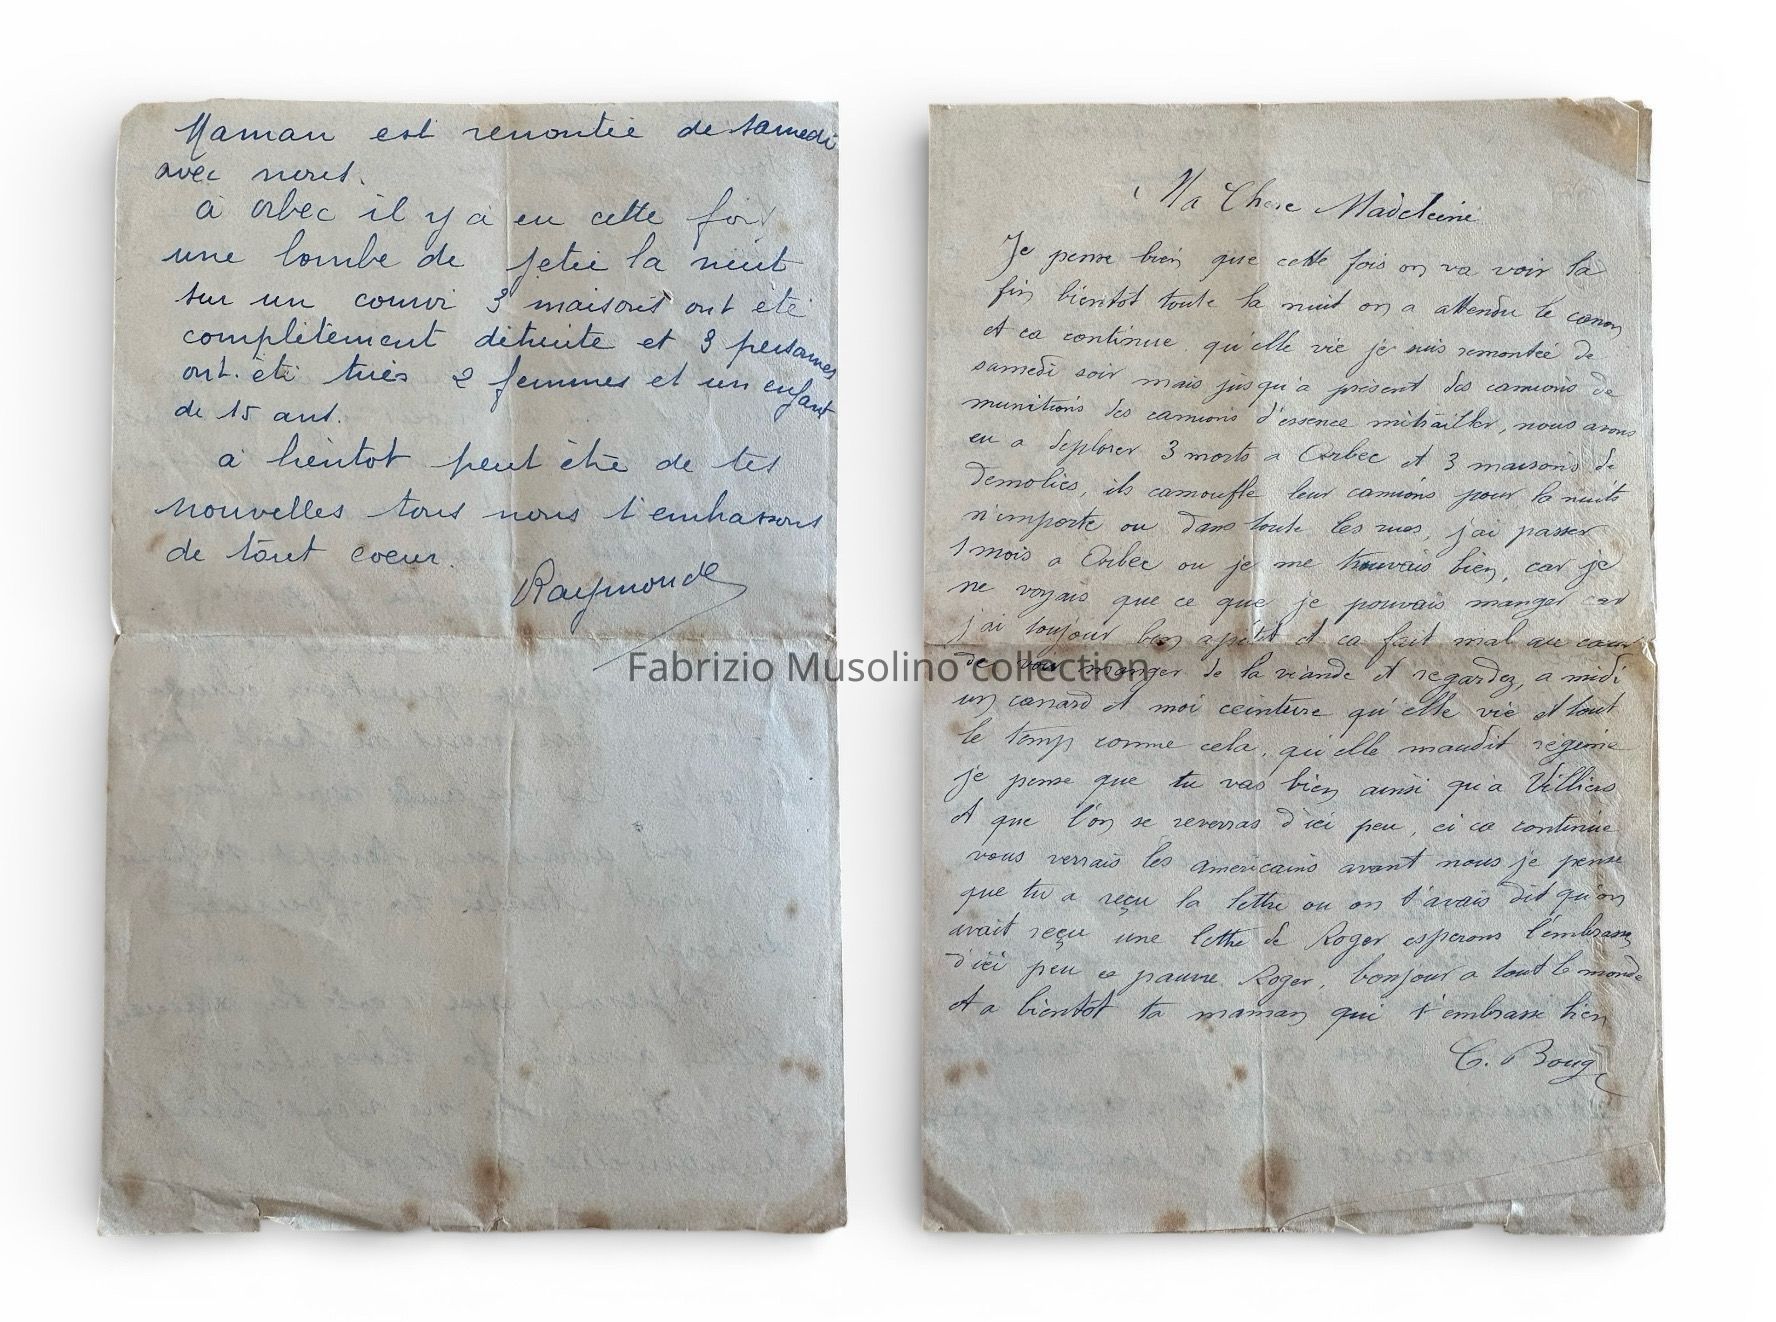 Maman est remontée de samedi
avec nous.
à Orbec il y à eu cette fois
une bombe de jetée la nuit
sur un convoi 3 maisons ont été
complètement détruite et 3 personnes
ont été tués 2 femmes et un enfant
de 15 ans.
à bientot peut être de tes
nouvelles tous nous t'embrassons
de tout coeur.
Raymonde
Ma Chere Madeleine
Je pense bien que cette fois on va voir la
fin bientôt toute la nuit on a attendu le canon
et ca continue qu'elle vie je suis remontée de
samedi soir mais jusqu'a présent des camions de
munitions des camions d'essence mitrailler, nous avons
eu a deplorer 3 morts a Orbec et 3 maisons de
demolies, ils camoufle leur camions pour la nuits
n'importe ou dans toute les rues, j'ai passer
1 mois a Orbec ou je me trouvais bien, car je
ne voyais que ce que je pouvais manger car
j'ai toujour bon apétit et ca fait mal au cœur
de voir manger de la viande et regardez, a midi
un canard et moi ceinture qu'elle vie et tout
le temp comme cela, qu'elle maudit régime
je pense que tu vas bien ainsi qu'a Villiers
et que l'on se reverras d'ici peu, ci ca continue
vous verrais les americains avant nous je pense
que tu a reçu la lettre ou on t'avais dit qu'on
avait reçu une lettre de Roger esperons l'embrasser
d'ici peu ce pauvre Roger, bonjour a tout le monde
et a bientôt ta maman qui t'embrasse bien
C. Boug
Fabrizio Musolino collection